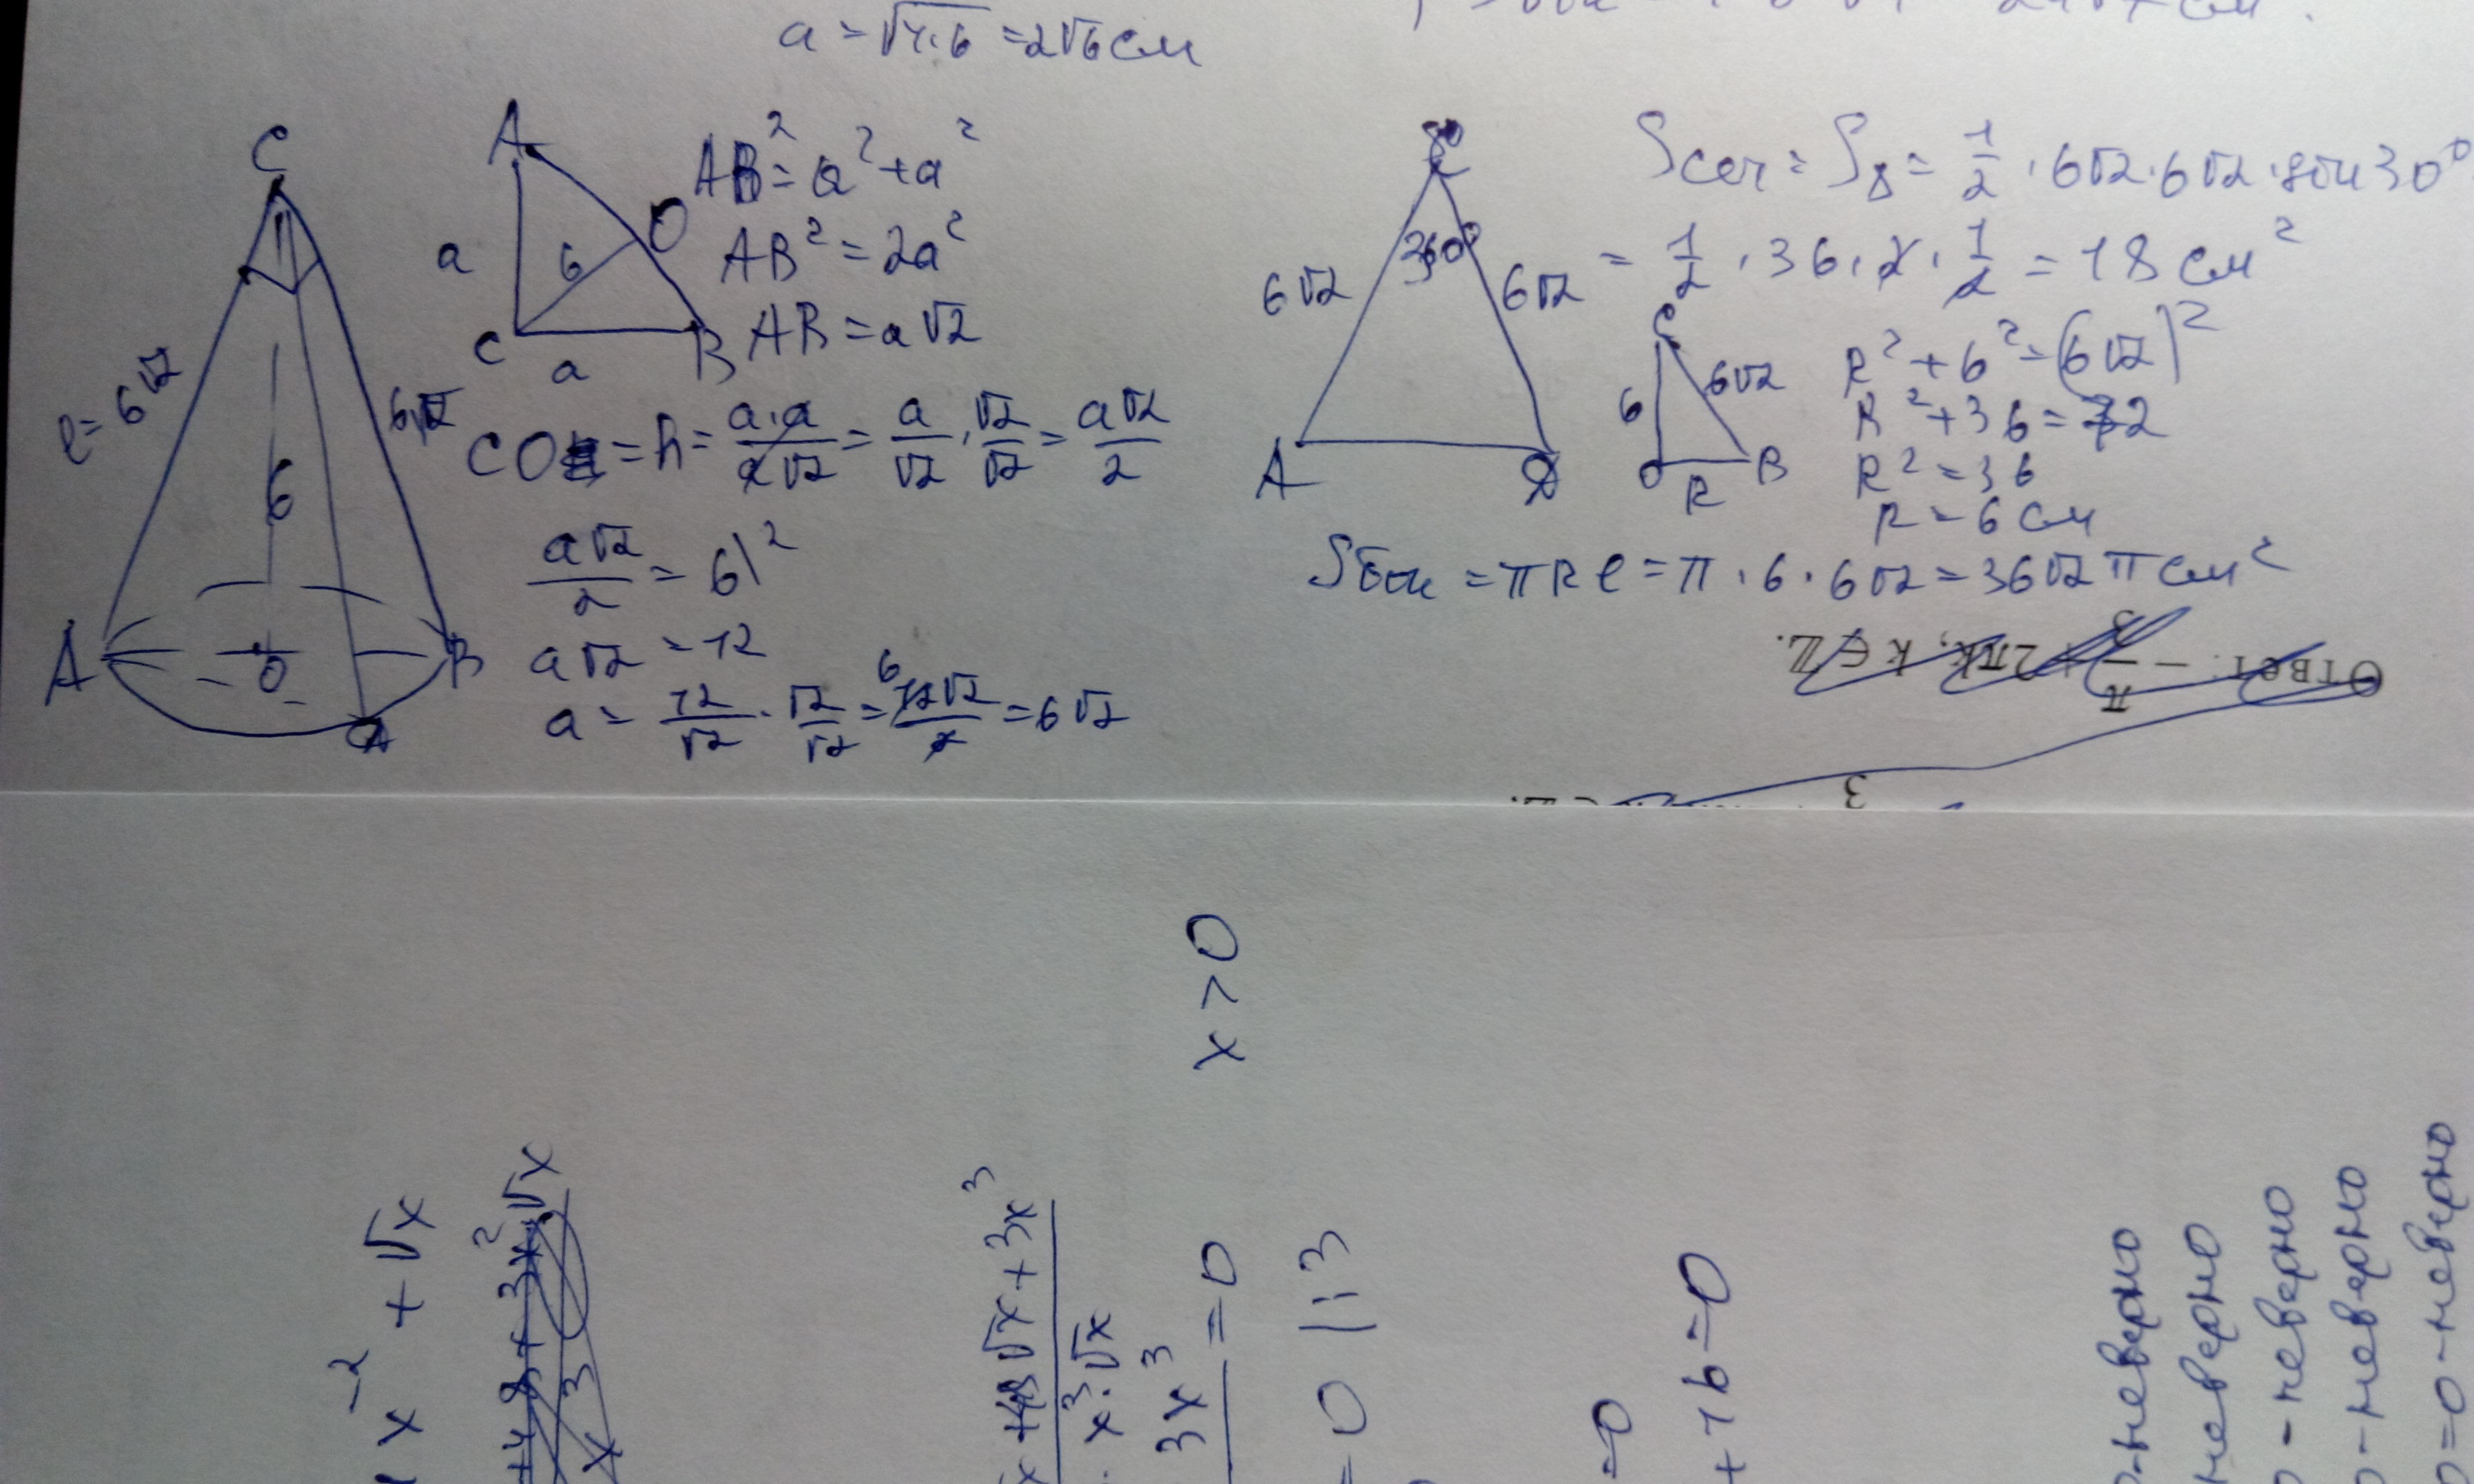 a = √4·6 = 2√6 см
C
l = 6√2
6√2
6
A
O
B
A
O
a
6
C
a
B
AB² = a² + a²
AB² = 2a²
AB = a√2
CO = h = a·a/a√2 = a/√2 · √2/√2 = a√2/2
a√2/2 = 6|²
a√2 = 12
a = 12/√2 · √2/√2 = 12√2/2 = 6√2
6
C
30°
6√2
6√2
A
Sсеч = S∆ = 1/2 · 6√2 · 6√2 · sin 30°
= 1/2 · 36 · 2 · 1/2 = 18 см²
C
6
6√2
O
R
B
R² + 6² = (6√2)²
R² + 36 = 72
R² = 36
R = 6 см
Sбок = πRl = π · 6 · 6√2 = 36√2 π см²
Ответ: − π/3 + 2πk, k ∈ Z.
3
x > 0
x⁻² + √x
+48 + 3x²√x
x³
x + 48√x + 3x³
x³ · √x
3x³ = 0
= 0 | : 3
= 0
+ 16 = 0
- неверно
неверно
0 - неверно
0 - неверно
0 = 0 - неверно